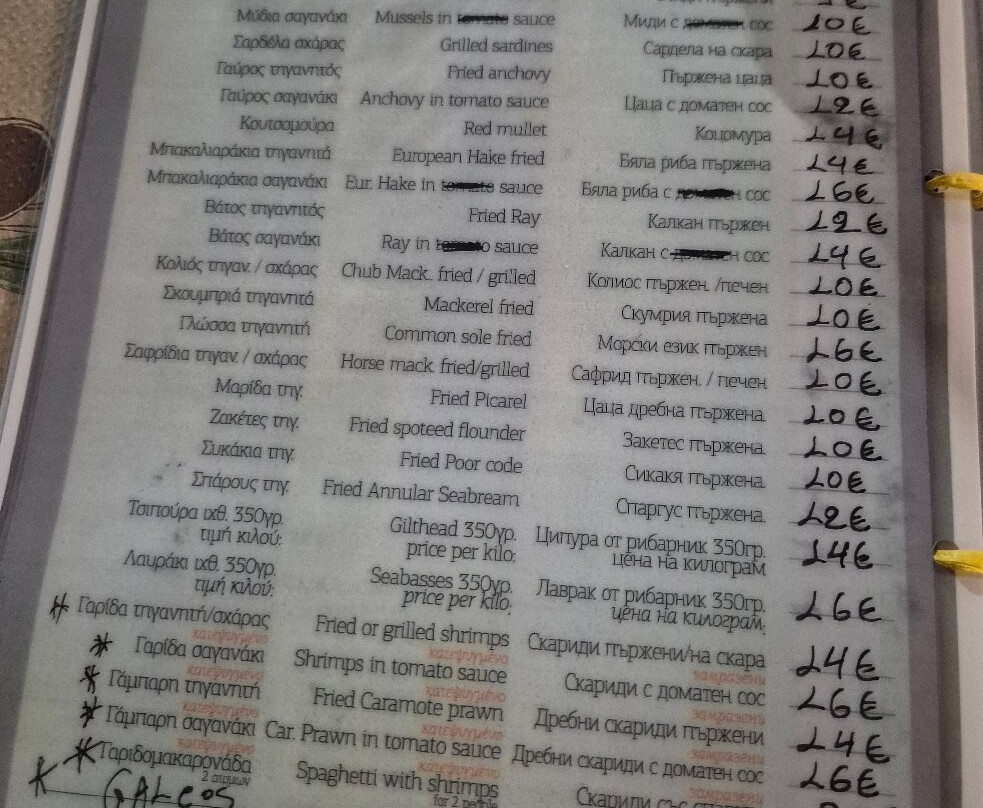 Μύδια σαγανάκι Mussels in tomato sauce Миди с доматен сос 10€
Σαρδέλα σχάρας Grilled sardines Сардела на скара 10€
Γαύρος τηγανητός Fried anchovy Пържена цаца 10€
Γαύρος σαγανάκι Anchovy in tomato sauce Цаца с доматен сос 12€
Κουτσομούρα Red mullet Коцомура 14€
Μπακαλιαράκια τηγανητά European Hake fried Бяла риба пържена 14€
Μπακαλιαράκια σαγανάκι Eur. Hake in tomato sauce Бяла риба с доматен сос 16€
Βάτος τηγανητός Fried Ray Калкан пържен 12€
Βάτος σαγανάκι Ray in tomato sauce Калкан с доматен сос 14€
Κολιός τηγαν. / σχάρας Chub Mack. fried / grilled Колиос пържен. /печен 10€
Σκουμπριά τηγανητά Mackerel fried Скумрия пържена 10€
Γλώσσα τηγανητή Common sole fried Морски език пържен 16€
Σαφρίδια τηγαν. / σχάρας Horse mack. fried/grilled Сафрид пържен. / печен 10€
Μαρίδα τηγ. Fried Picarel Цаца дребна пържена 10€
Ζακέτες τηγ. Fried spoteed flounder Закетес пържена 10€
Συκάκια τηγ. Fried Poor code Сикакя пържена 10€
Σπάρους τηγ. Fried Annular Seabream Спаргус пържена 12€
Τσιπούρα ιχθ. 350γρ. Gilthead 350γρ. Ципура от рибарник 350гр. 14€
τιμή κιλού: price per kilo: цена на килограм
Λαυράκι ιχθ. 350γρ. Seabasses 350γρ. Лаврак от рибарник 350гр. 16€
τιμή κιλού: price per kilo: цена на килограм:
* Γαρίδα τηγανητή/σχάρας Fried or grilled shrimps Скариди пържени/на скара 14€
κατεψυγμένο κατεψυγμένο замразени
* Γαρίδα σαγανάκι Shrimps in tomato sauce Скариди с доматен сос 16€
κατεψυγμένο κατεψυγμένο замразени
* Γάμπαρη τηγανητή Fried Caramote prawn Дребни скариди пържени 14€
κατεψυγμένο κατεψυγμένο замразени
* Γάμπαρη σαγανάκι Car. Prawn in tomato sauce Дребни скариди с доматен сос 16€
κατεψυγμένο κατεψυγμένο замразени
* Γαριδομακαρονάδα Spaghetti with shrimps Скариди със
2 ατόμων for 2 people
* GALEOS